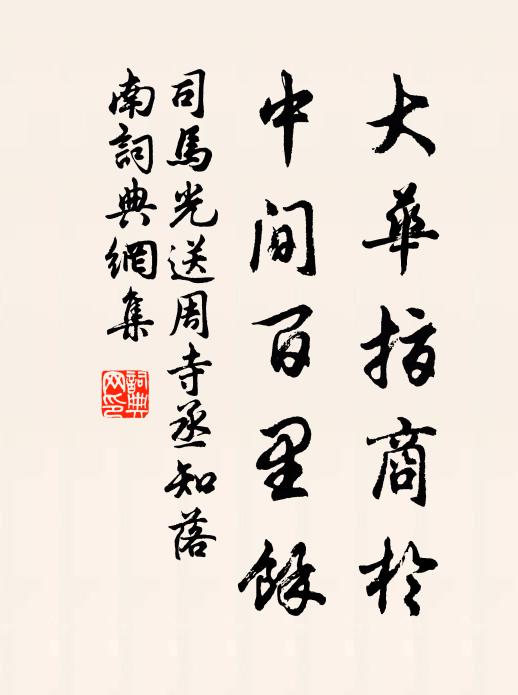 大華指商於
中間百里餘
司馬光送周寺丞知落
南詞典網集
詞典
网印